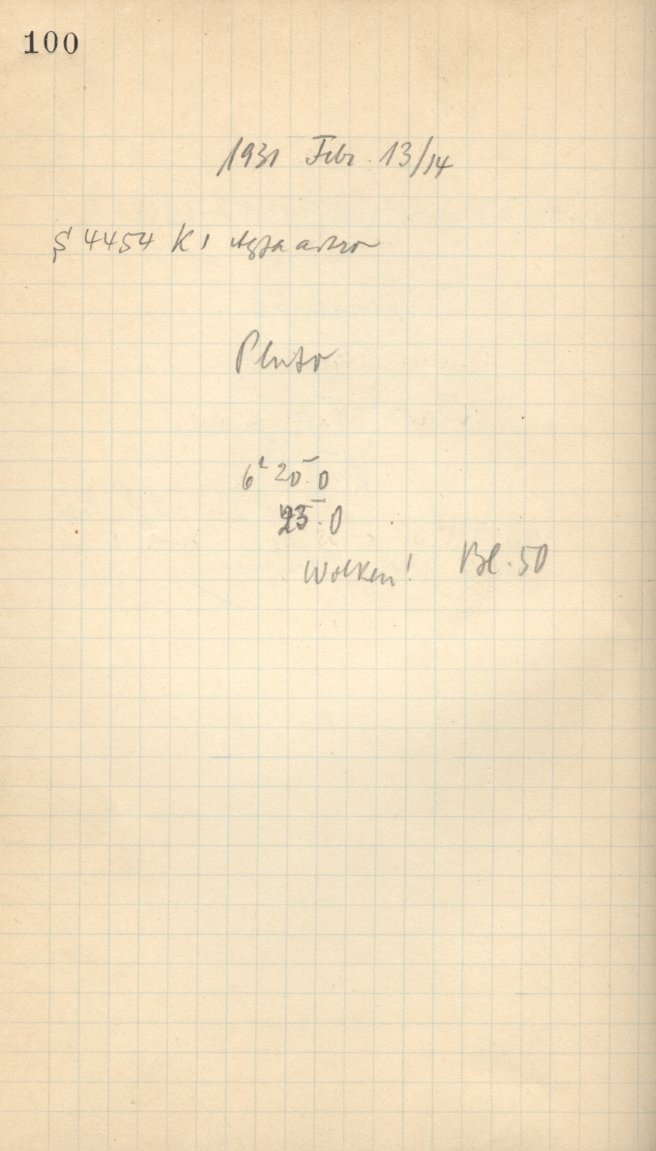 100
1931 Febr. 13/14
S 4454 K1 Agfa astro
Pluto
6ʰ 20ᵐ.0
25ᵐ.0
Wolken! Bl. 50